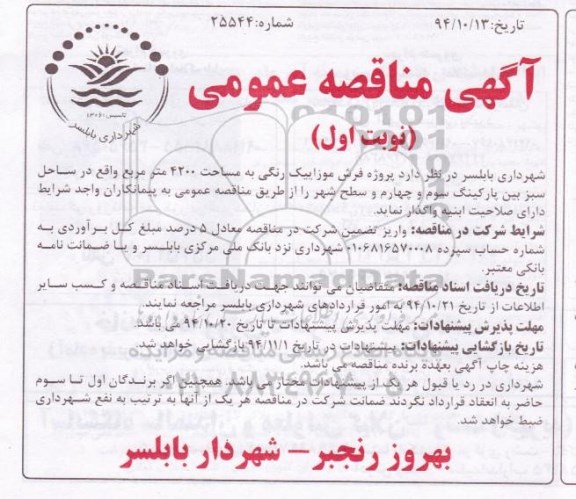 تاریخ:۹۴/۱۰/۱۳
شماره:۲۵۵۴۴
تاسیس ۱۳۰۶
شهرداری بابلسر
آگهی مناقصه عمومی
(نوبت اول)
شهرداری بابلسر در نظر دارد پروژه فرش موزاییک رنگی به مساحت ۴۲۰۰ متر مربع واقع در ساحل
سبز بین پارکینگ سوم و چهارم و سطح شهر را از طریق مناقصه عمومی به پیمانکاران واجد شرایط
دارای صلاحیت ابنیه واگذار نماید.
شرایط شرکت در مناقصه: واریز تضمین شرکت در مناقصه معادل ۵ درصد مبلغ کل برآوردی به
شماره حساب سپرده ۰۱۰۶۸۱۶۵۷۰۰۰۸ شهرداری نزد بانک ملی مرکزی بابلسر و یا ضمانت نامه
بانکی معتبر.
تاریخ دریافت اسناد مناقصه: متقاضیان می توانند جهت دریافت اسناد مناقصه و کسب سایر
اطلاعات از تاریخ ۹۴/۱۰/۲۱ به امور قراردادهای شهرداری بابلسر مراجعه نمایند.
مهلت پذیرش پیشنهادات: مهلت پذیرش پیشنهادات تا تاریخ ۹۴/۱۰/۳۰ می باشد.
تاریخ بازگشایی پیشنهادات: پیشنهادات در تاریخ ۹۴/۱۱/۱ بازگشایی خواهد شد.
هزینه چاپ آگهی بعهده برنده مناقصه می باشد.
شهرداری در رد یا قبول هر یک از پیشنهادات مختار می باشد. همچنین اگر برندگان اول تا سوم
حاضر به انعقاد قرارداد نگردند ضمانت شرکت در مناقصه هر یک از آنها به ترتیب به نفع شهرداری
ضبط خواهد شد.
بهروز رنجبر – شهردار بابلسر
ParsNamadData